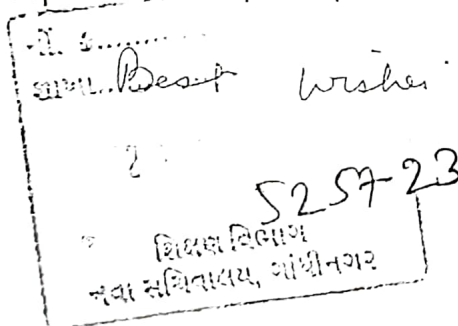 શાખા.. Best wishes
5257-23
શિક્ષણ વિભાગ
નવા સચિવાલય, ગાંધીનગર